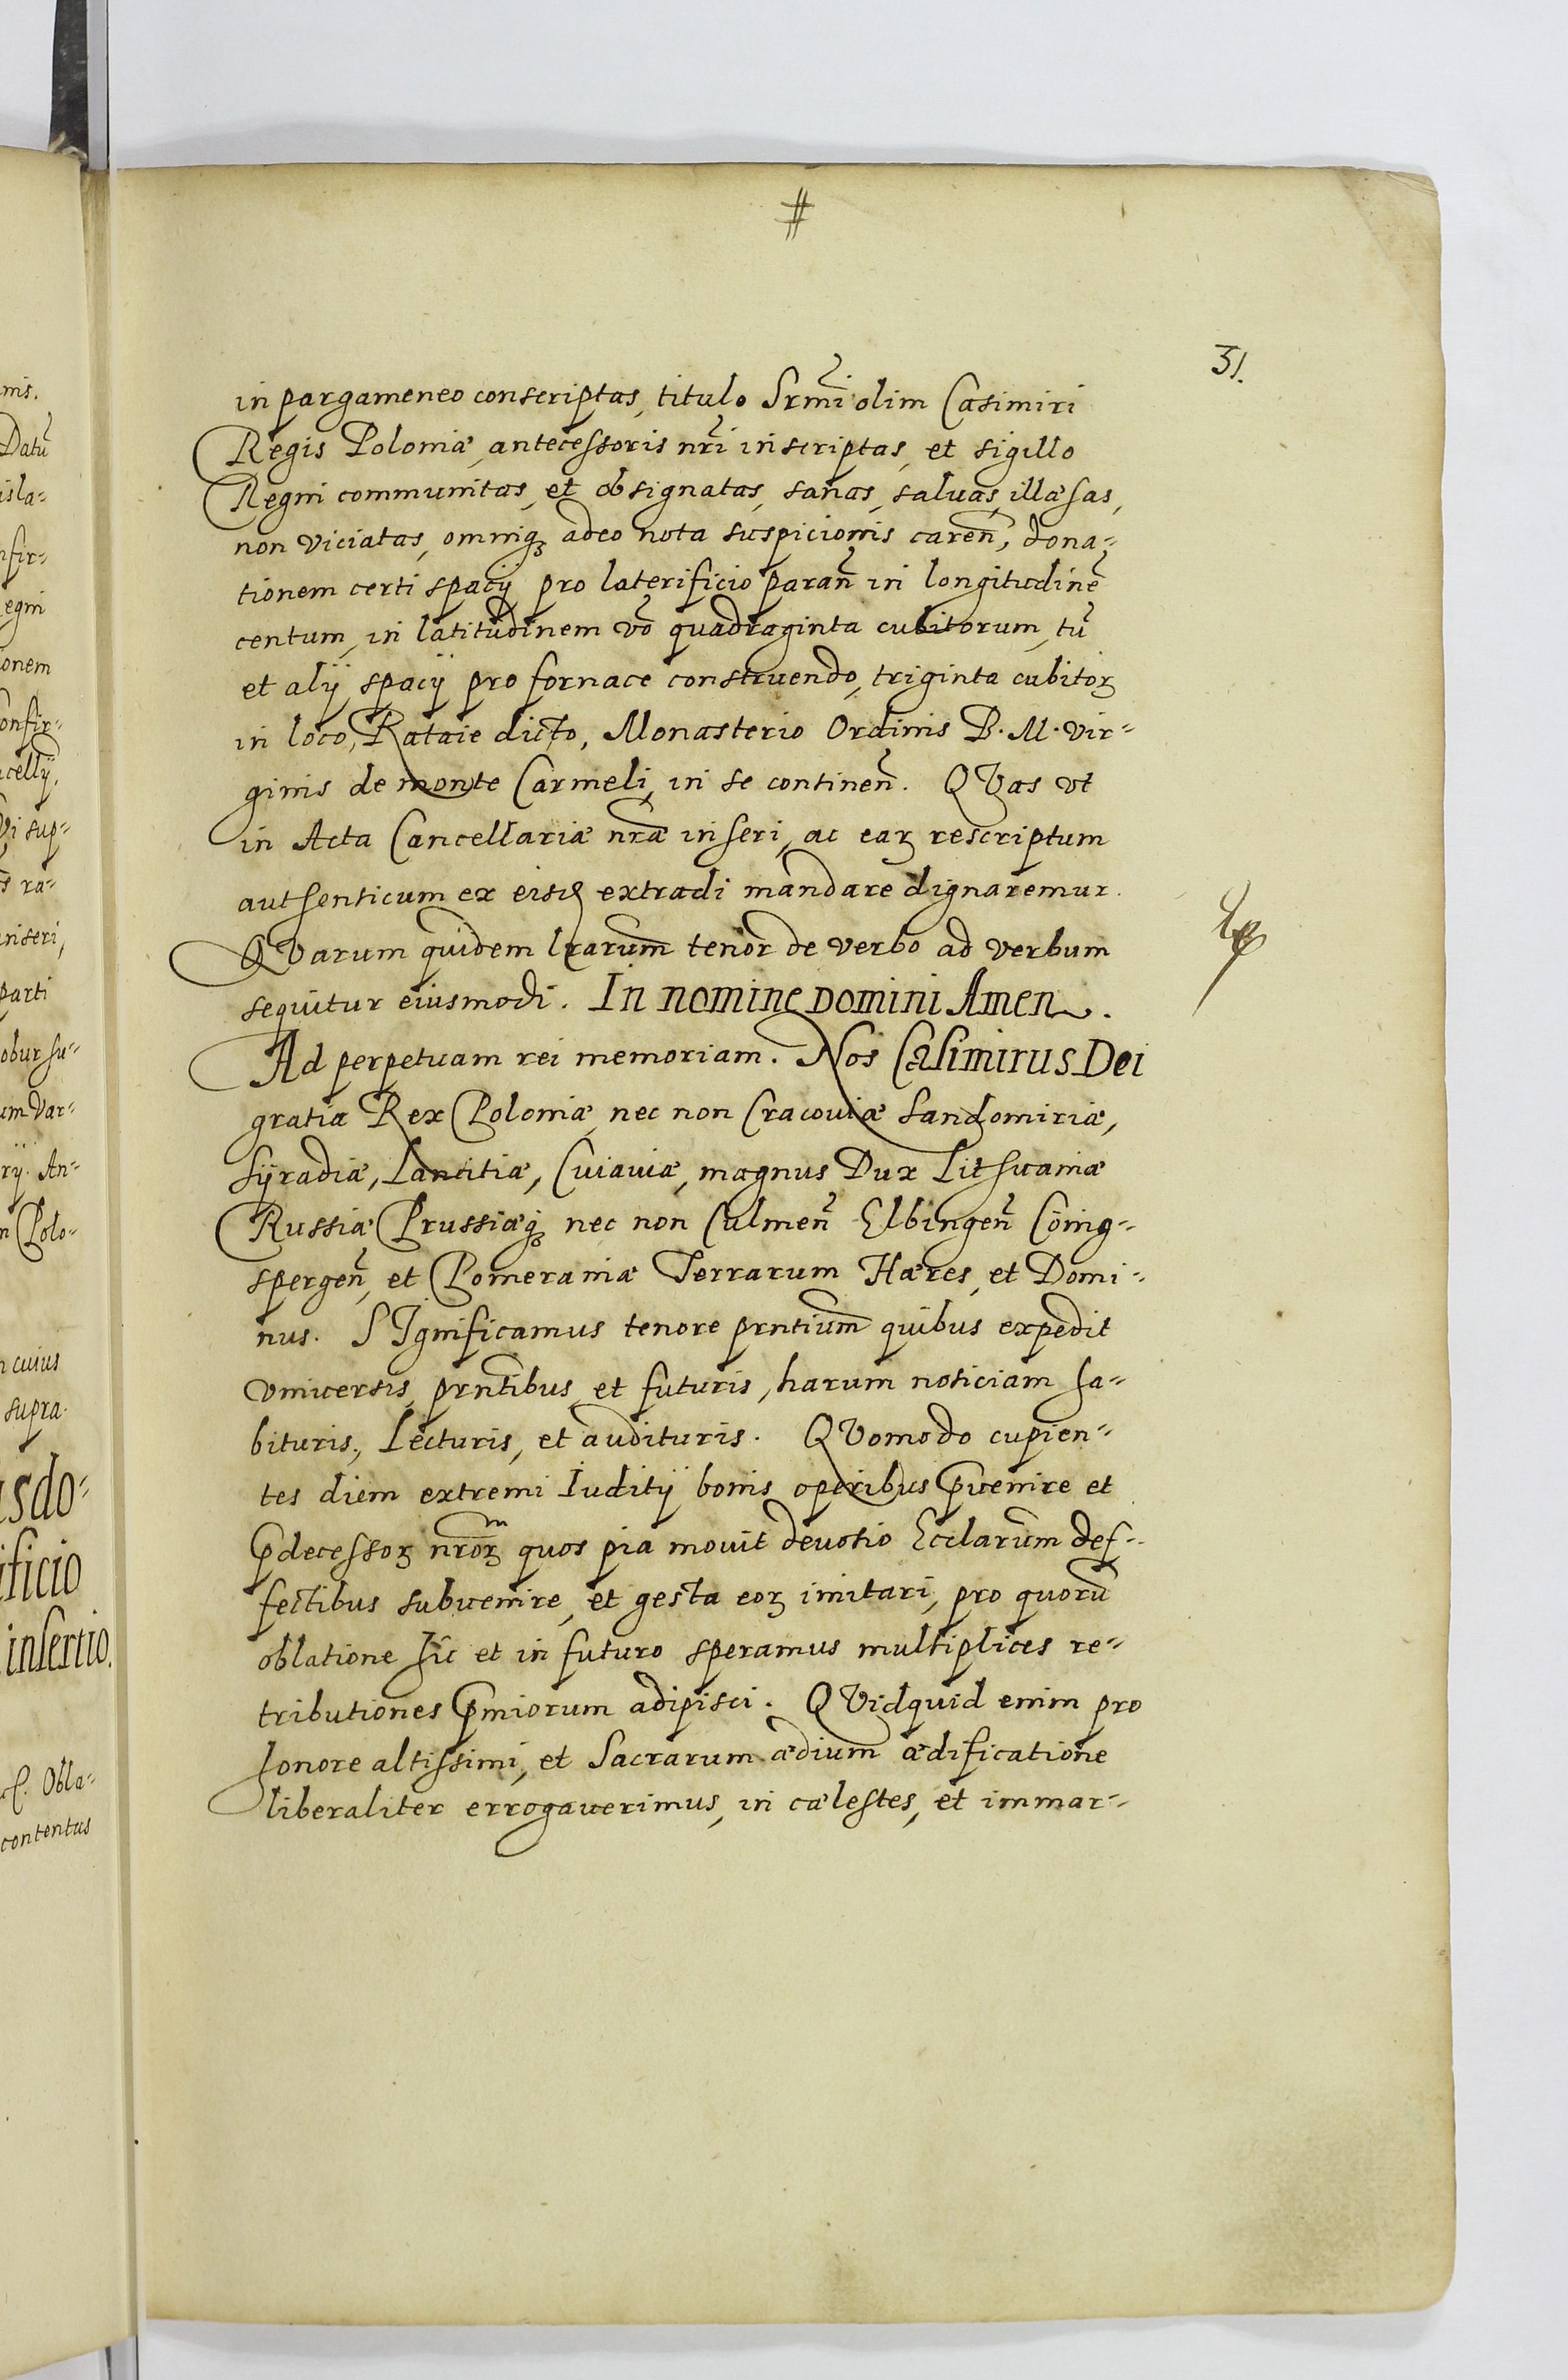 #
31.
in pargameneo conscriptas, titulo Srm̃i olim Casimiri
Regis Poloniæ, antecessoris nr̃i inscriptas, et sigillo
Regni communitas, et obsignatas, sanas, saluas, illæsas,
non viciatas, omniq3 adeo nota suspicionis careñ, dona=
tionem certi spacÿ pro laterificio parañ in longitudinẽ
centum, in latitudinem võ quadraginta cubitorum, tũ
et alÿ spacÿ pro fornace construendo, triginta cubitoꝝ
in loco, Rataie dicto, Monasterio Ordinis B. M. Vir=
ginis de monte Carmeli, in se contineñ. QVas vt
in Acta Cancellariæ nr̃æ inseri, ac eaꝝ rescriptum
authenticum ex eisd extradi mandare dignaremur.
QVarum quidem lr̃arum tenor de verbo ad verbum
sequitur eiusmodi. In nomine Domini Amen.
Ad perpetuam rei memoriam. Nos Casimirus Dei
gratia Rex Poloniæ, nec non Cracouiæ Sandomiriæ,
Sÿradiæ, Lancitiæ, Cuiauiæ, magnus Dux Lithuaniæ
Russiæ Prussiæq3 nec non Culmeñ Elbingeñ Cöing=
spergeñ, et Pomeraniæ Terrarum Hæres, et Domi=
nus. SIgnificamus tenore prñtium quibus expedit
vniuersis, prñtibus, et futuris, harum noticiam ha=
bituris, Lecturis, et audituris. QVomodo cupien=
tes diem extremi Iuditÿ bonis operibus p̃uenire et
p̃decessoꝝ nr̃oꝝ quos pia mouit deuotio Ecclarum def=
fectibus subuenire, et gesta eoꝝ imitari, pro quorũ
oblatione hic et in futuro speramus multiplices re=
tributiones p̃miorum adipisci. QVidquid enim pro
honore altissimi, et Sacrarum ædium ædificatione
liberaliter errogauerimus, in cælestes, et immar=